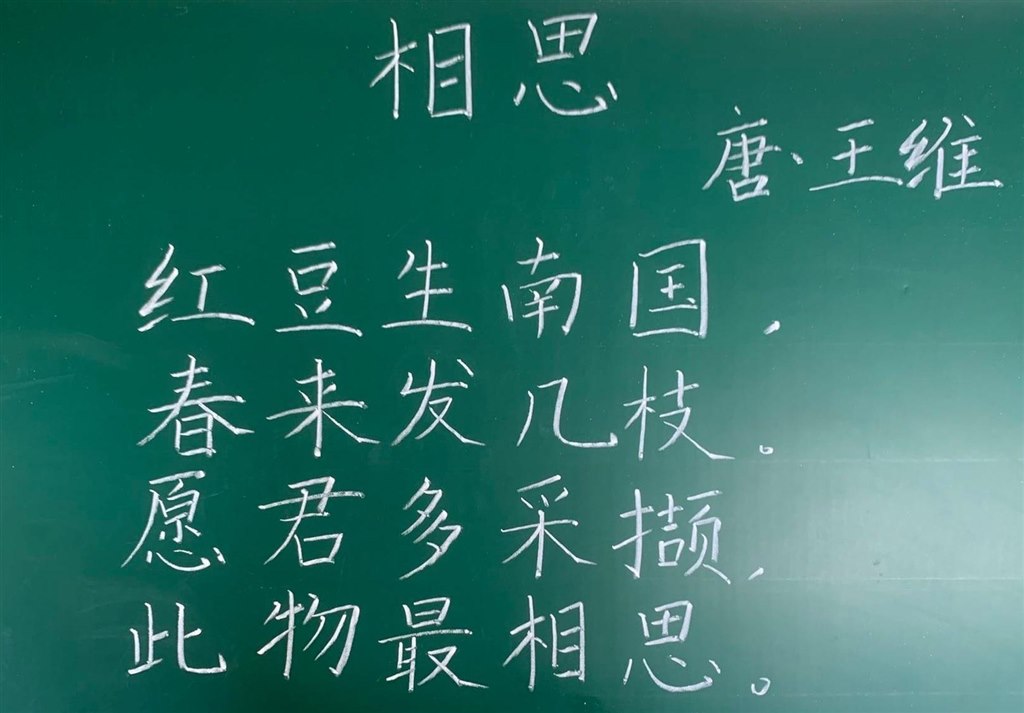 相思
唐、王维
红豆生南国，
春来发几枝。
愿君多采撷，
此物最相思。